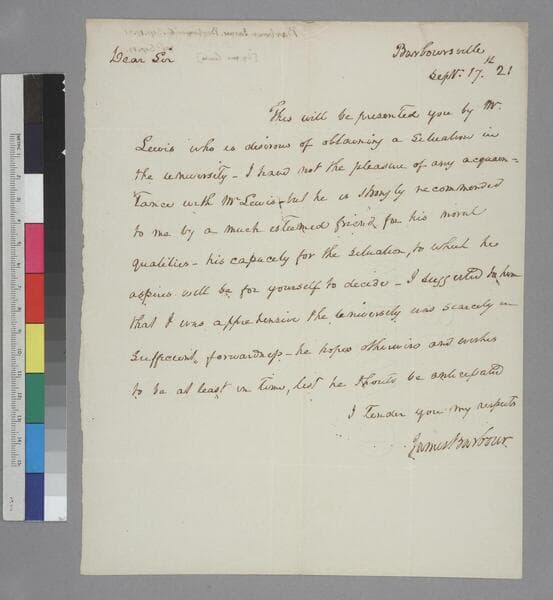 Barboursville
Dear Sir Sepr. 17.th 21
This will be presented you by Mr.
Lewis who is desirous of obtaining a situation in
the University - I have not the pleasure of any acquain-
tance with Mr Lewis - but he is strongly recommended
to me by a much esteemed friend, for his moral
qualities - his capacity for the situation, to which he
aspires will be for yourself to decide - I suggested to him
that I was apprehensive the University was scarcely in
sufficient forwardness - he hopes otherwise and wishes
to be at least in time, lest he should be anticipated
I tender you my respects
James Barbour